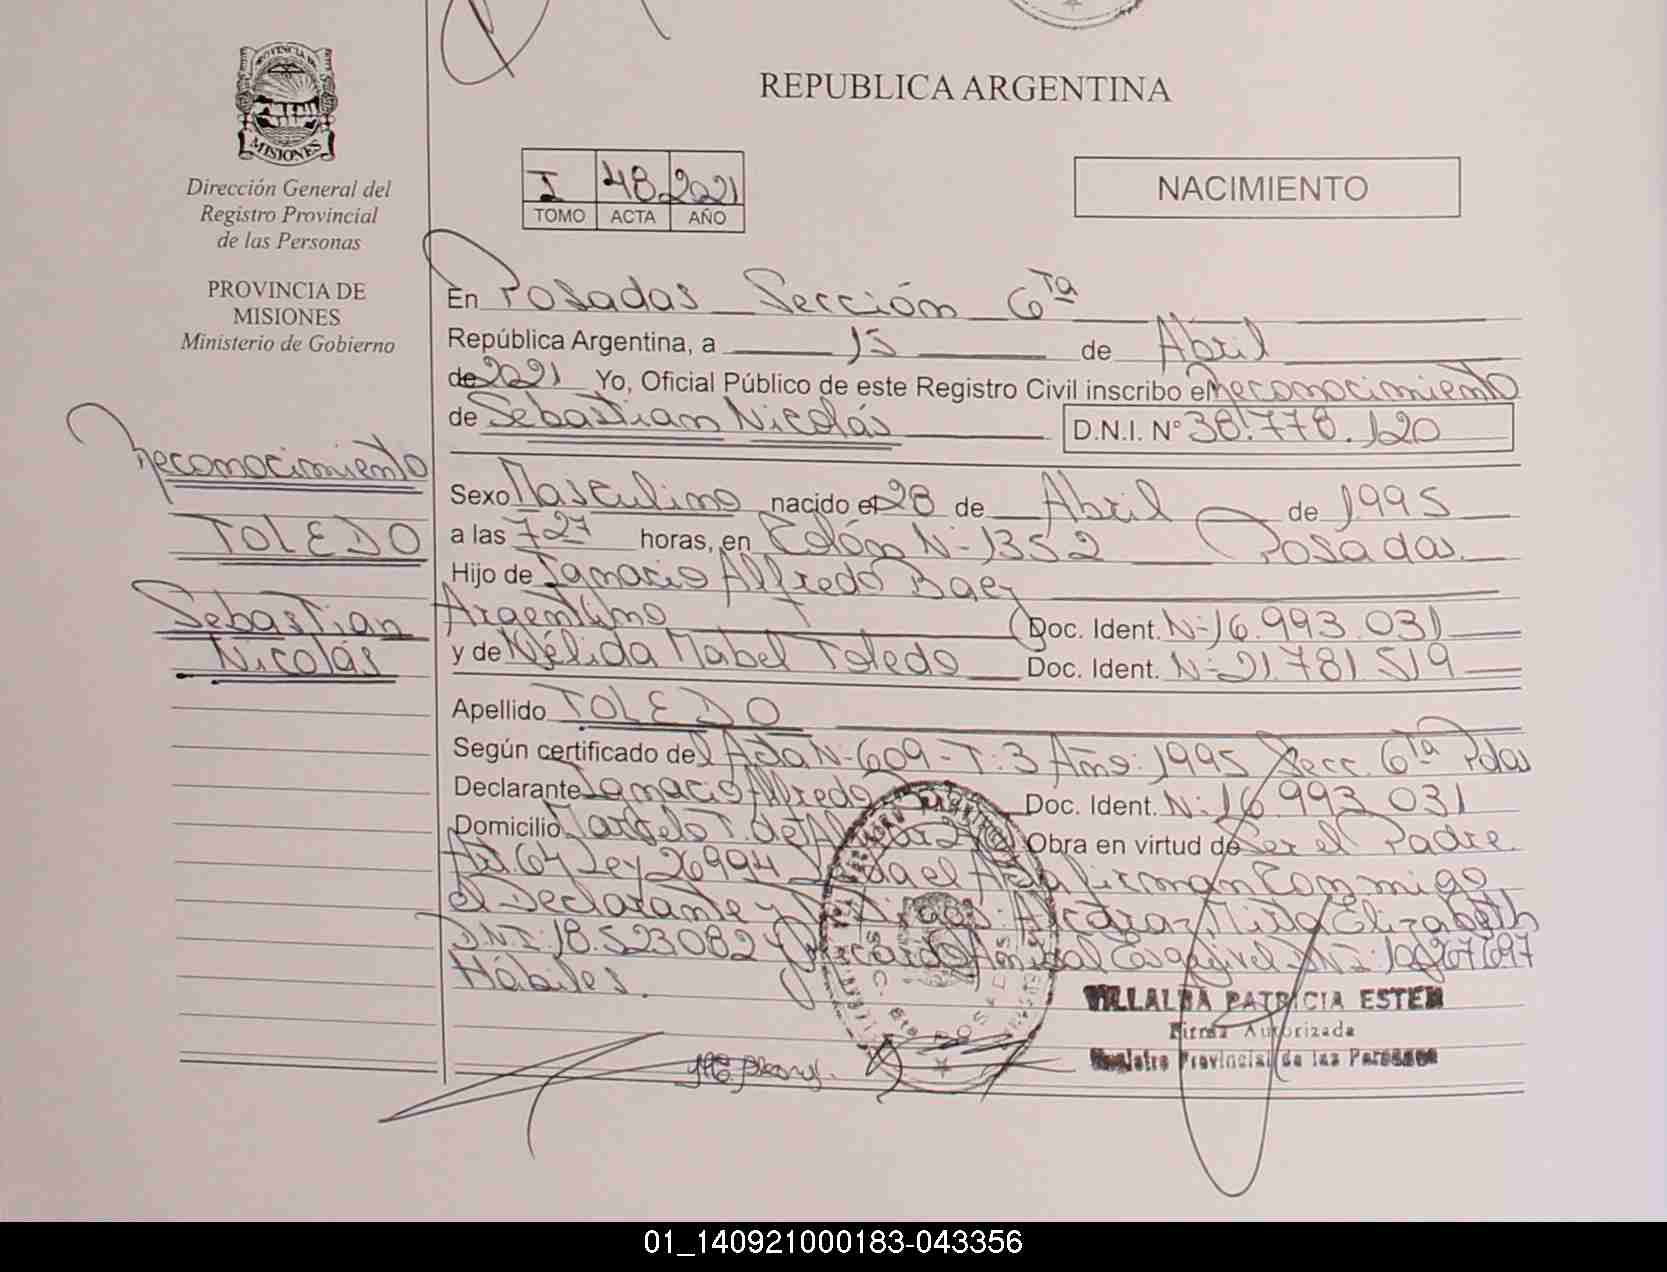 PROVINCIA DE
MISIONES
Dirección General del
Registro Provincial
de las Personas
PROVINCIA DE
MISIONES
Ministerio de Gobierno
Reconocimiento
TOLEDO
Sebastian
Nicolás
REPUBLICA ARGENTINA
I 48 2021
TOMO ACTA AÑO
NACIMIENTO
En Posadas Sección 6ta
República Argentina, a 15 de Abril
de 2021 Yo, Oficial Público de este Registro Civil inscribo el Reconocimiento
de Sebastian Nicolás D.N.I. N° 38.778.120
Sexo Masculino nacido el 28 de Abril de 1995
a las 7 27 horas, en Colón N-1352 Posadas.
Hijo de Ignacio Alfredo Baez
Argentino Doc. Ident. N-16.993.031
y de Nélida Mabel Toledo Doc. Ident. N-21.781.519
Apellido TOLEDO
Según certificado del Acta N-609-T:3 Año:1995 Secc. 6ta Pdas
Declarante Ignacio Alfredo Doc. Ident. N:16.993.031
Domicilio Marcelo T. de Alvear Obra en virtud de Ser el Padre.
Art. 64 Ley 26994 el Acta firman conmigo
el Declarante y Mirta Elizabeth
DNI:18.523082 y Ricardo Anibal Esquivel DNI:
Hábiles.
VILLALBA PATRICIA ESTER
Firma Autorizada
Registro Provincial de las Personas
01_140921000183-043356